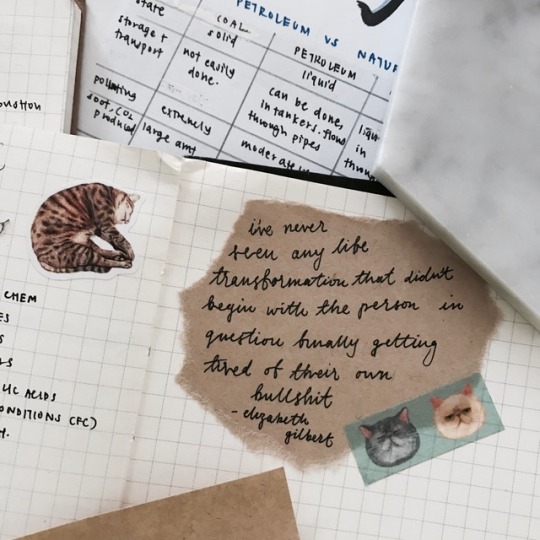 PETROLEUM VS
state
COAL
PETROLEUM
storage +
transport
solid
liquid
not easily
done.
can be done,
in tankers. flows
through pipes
in
polluting
soot, CO2
produced
extremely
large amt
moderate
i've never
seen any life
transformation that didn't
begin with the person in
question finally getting
tired of their own
bullshit
- elizabeth
gilbert
CHEM
ACIDS
CFC)